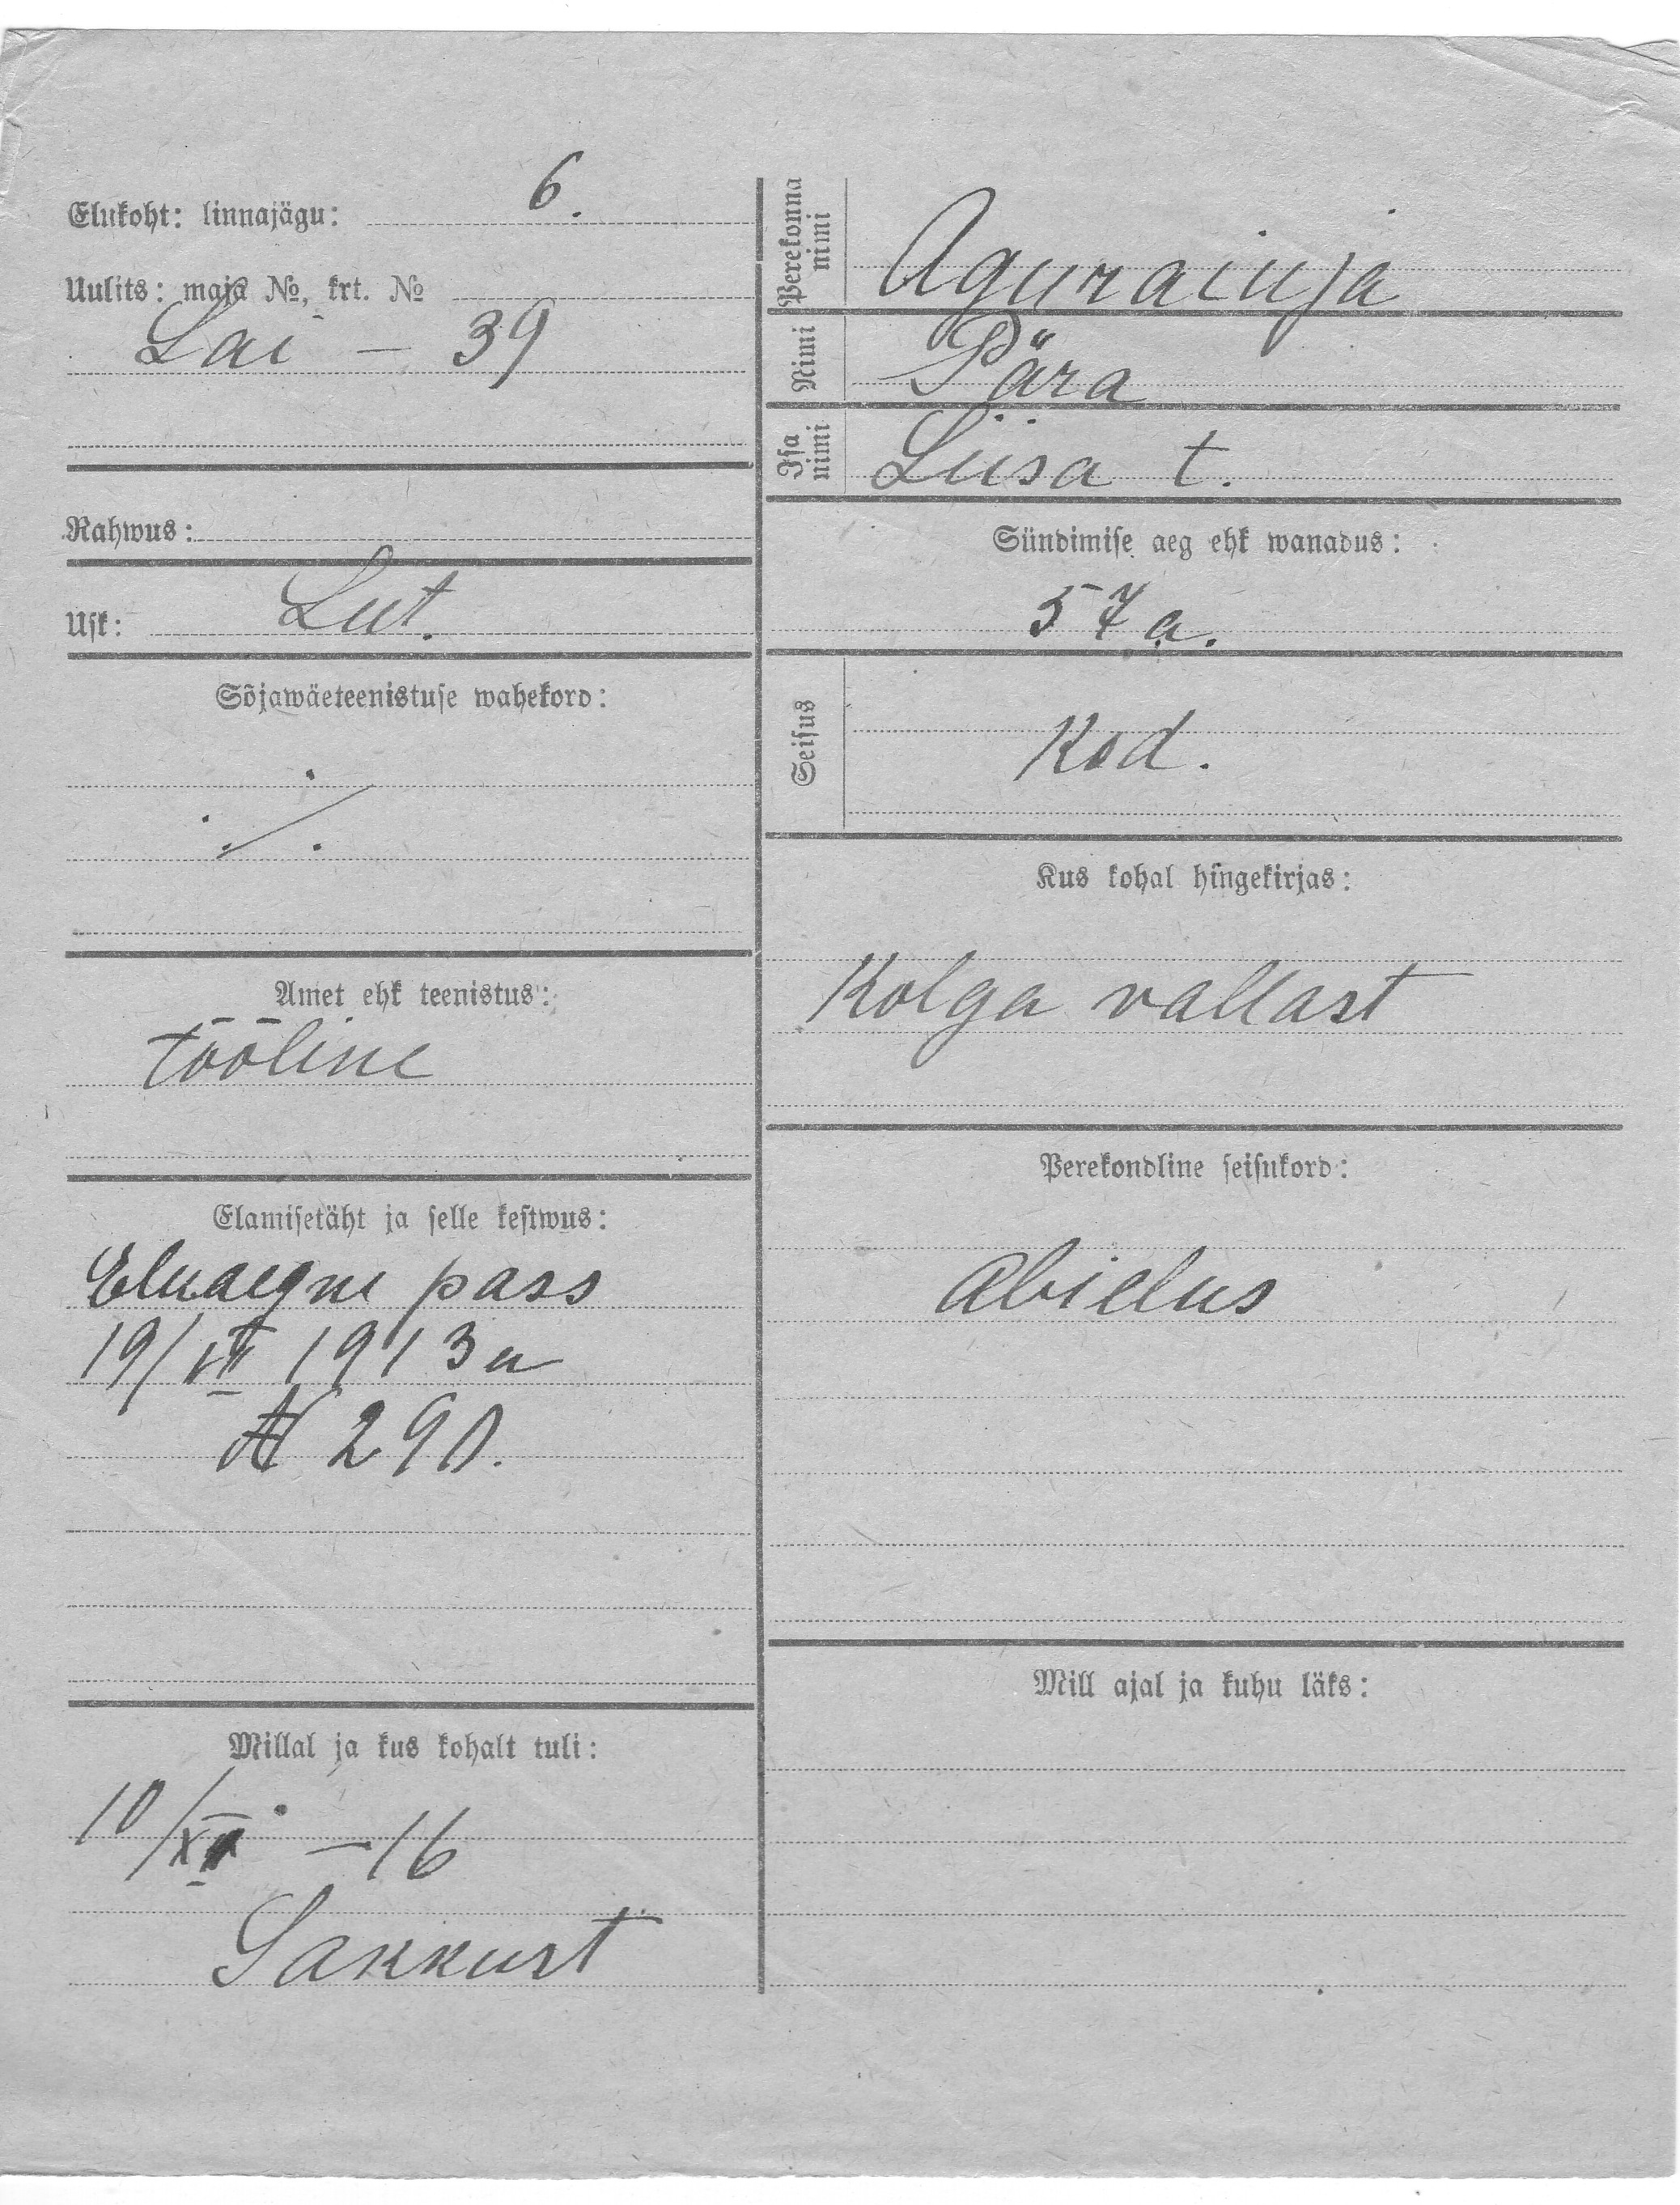 Elukoht: linnajägu: 6.
Uulits: maja №, krt. №
Lai – 39
Rahwus:
Usk: Lut.
Sõjawäeteenistuse wahekord:
./.
Amet ehk teenistus:
tööline
Elamisetäht ja selle kestwus:
Eluaegne pass
19/VII 1913 a
№ 290.
Millal ja kus kohalt tuli:
10/XII – 16
Sakkust
Perekonna nimi
Nimi
Isa nimi Liisa t.
Sündimise aeg ehk wanadus:
57 a.
Seisus Kod.
Kus kohal hingekirjas:
Kolga vallast
Perekondline seisukord:
Abielus
Mill ajal ja kuhu läks: